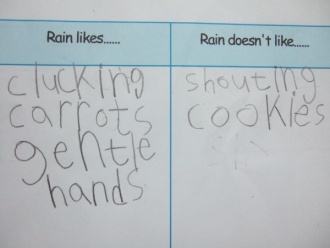 Rain likes......
Rain doesn't like......
clucking
carrots
gentle
hands
shouting
cookies